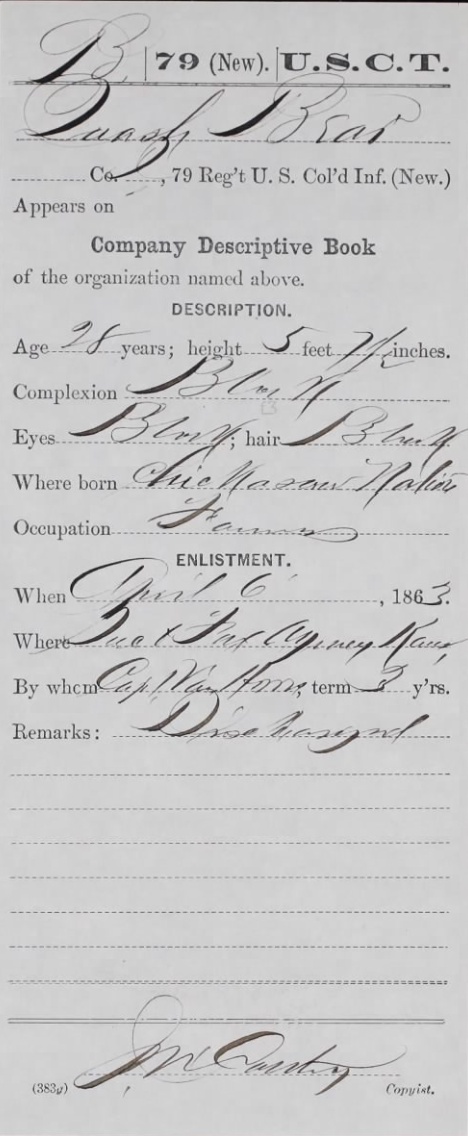 B | 79 (New). | U.S.C.T.
Quash Bear
Co. , 79 Reg't U. S. Col'd Inf. (New.)
Appears on
Company Descriptive Book
of the organization named above.
DESCRIPTION.
Age 28 years; height 5 feet 7 1/2 inches.
Complexion Black
Eyes Black; hair Black
Where born Chickasaw Nation
Occupation Farmer
ENLISTMENT.
When April 6, 1863.
Where Sac & Fox Agency Kans,
By whom Capt. Van Horn; term 3 y'rs.
Remarks: Discharged
(383g) Copyist.